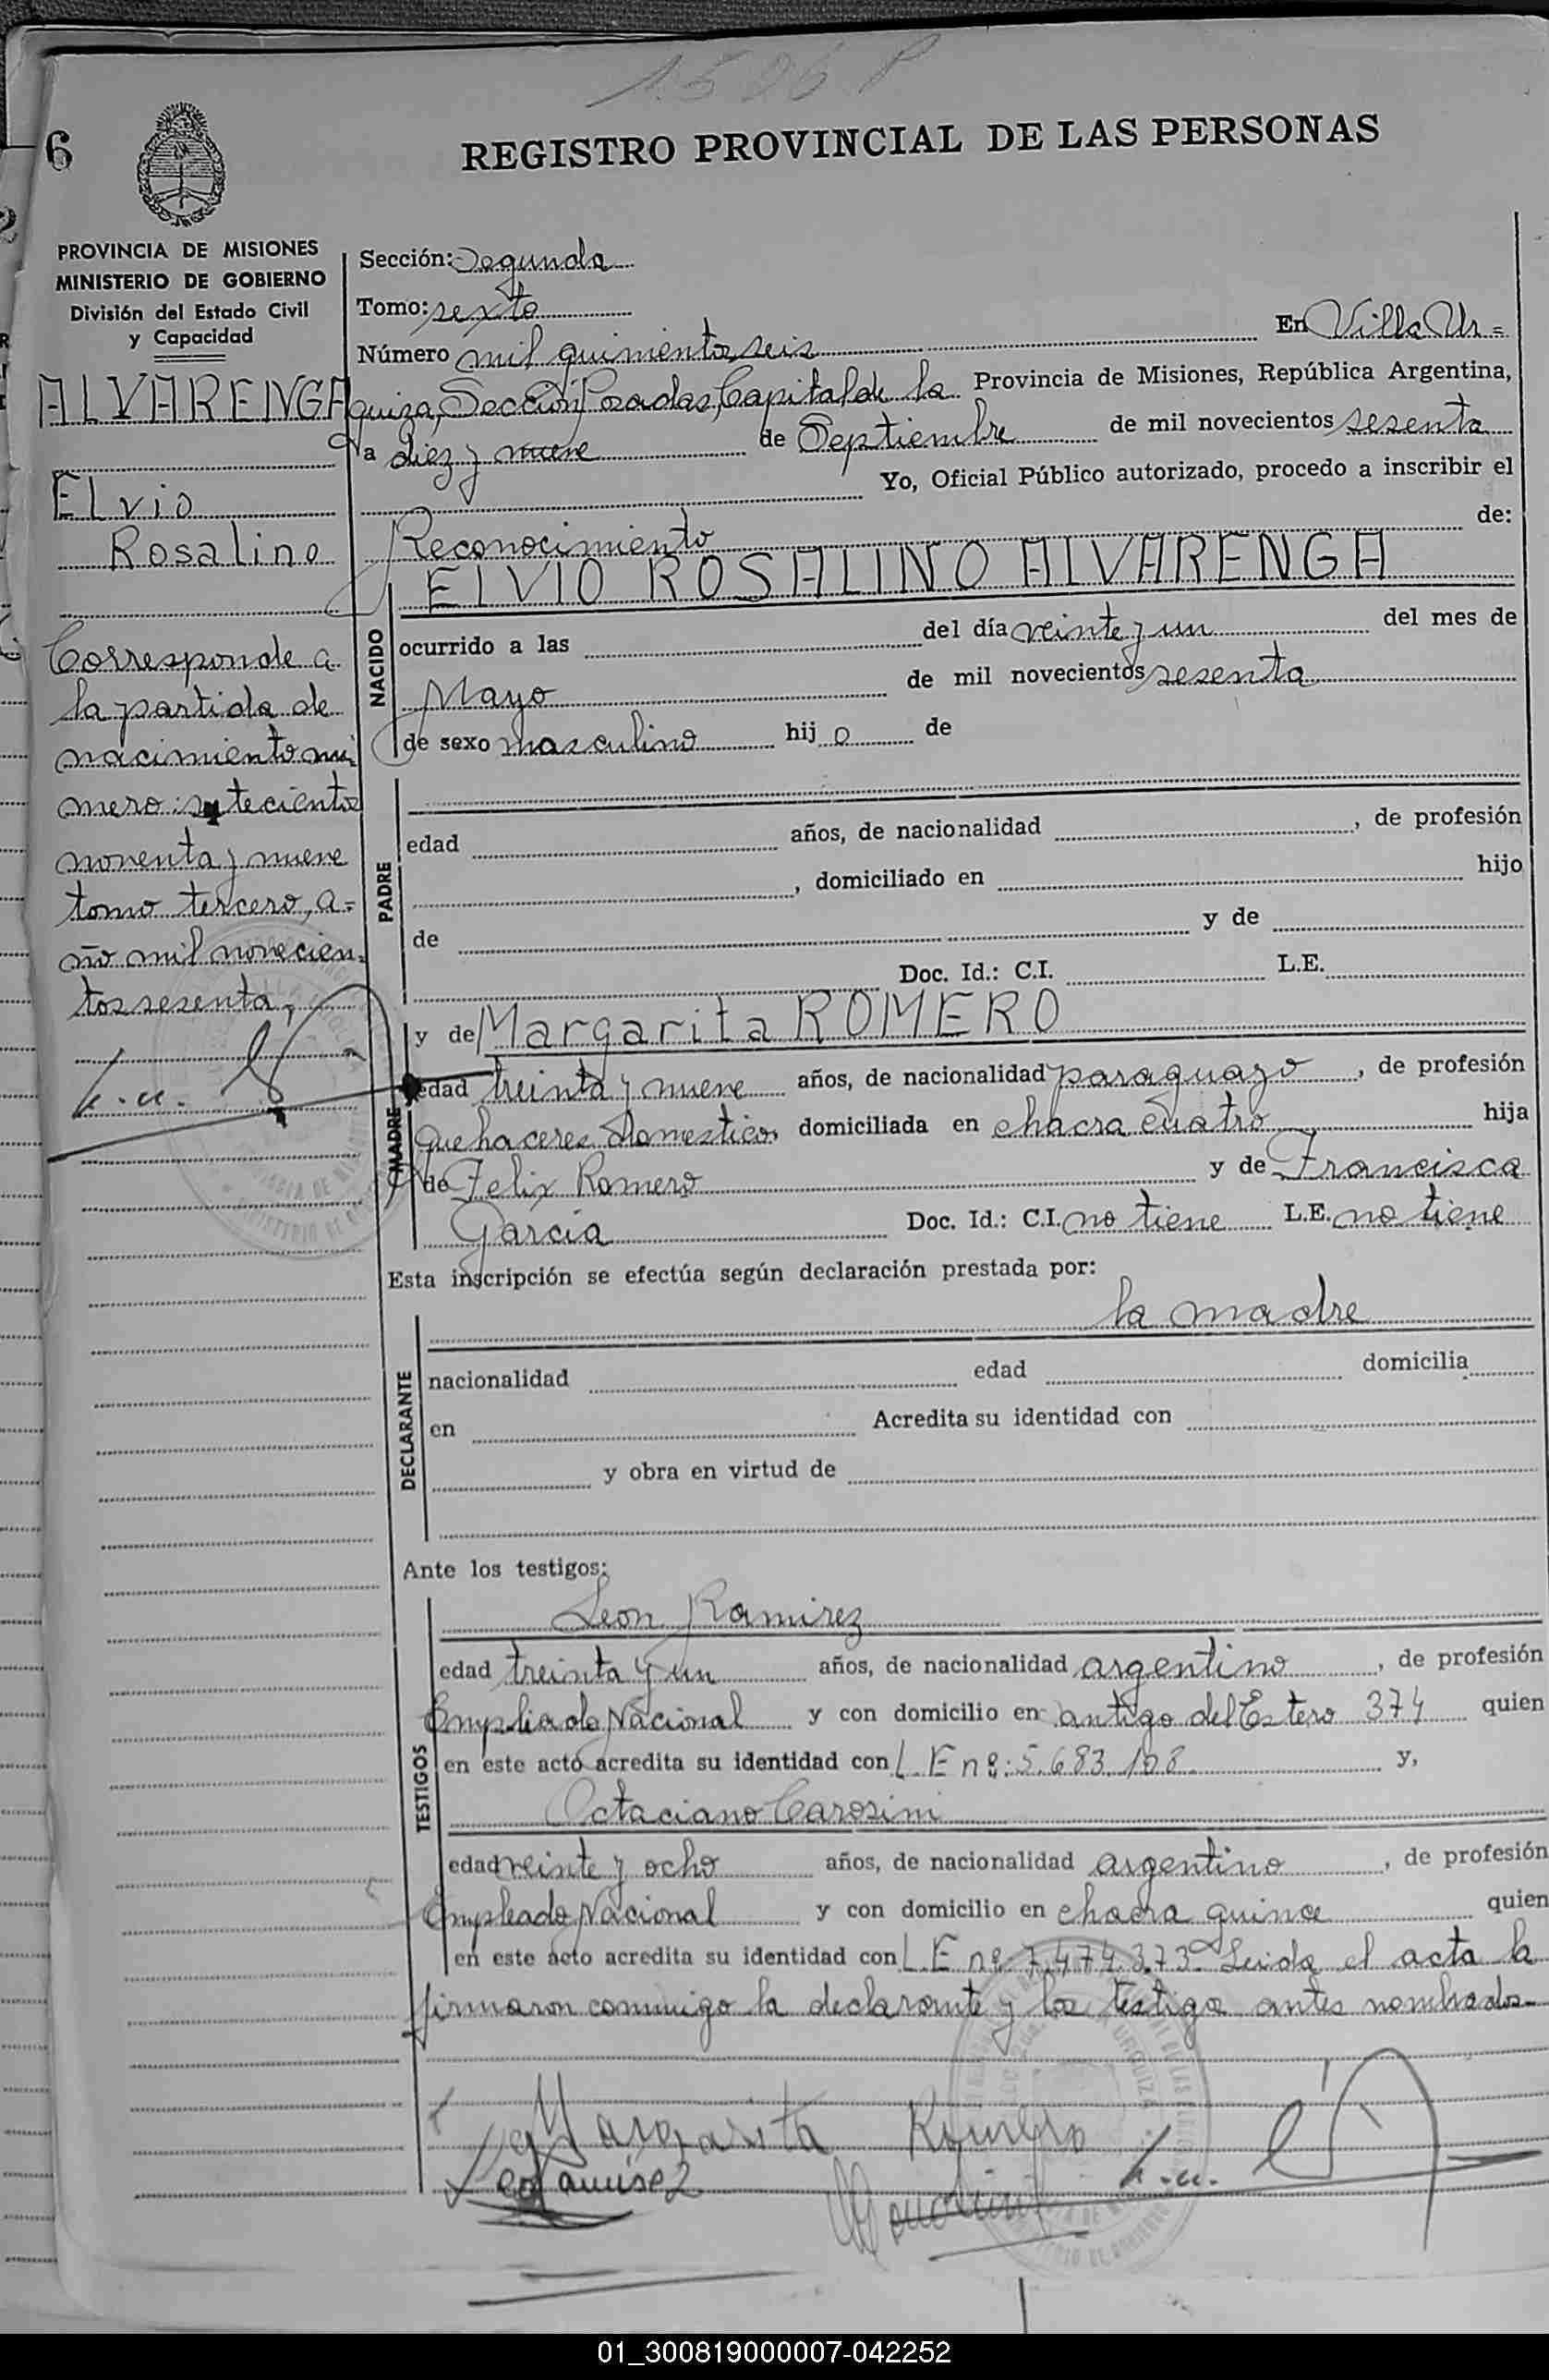 1.506 P
6
REGISTRO PROVINCIAL DE LAS PERSONAS
PROVINCIA DE MISIONES
MINISTERIO DE GOBIERNO
División del Estado Civil
y Capacidad
ALVARENGA
Elvio
Rosalino
Corresponde a
la partida de
nacimiento nú-
mero: setecientos
noventa y nueve
tomo tercero, a-
ño mil novecien-
tos sesenta,
Sección: Segunda
Tomo: sexto
Número mil quinientos seis En Villa Ur=
quiza, Sección Posadas, Capital de la Provincia de Misiones, República Argentina,
a diez y nueve de Septiembre de mil novecientos sesenta
Yo, Oficial Público autorizado, procedo a inscribir el
Reconocimiento de:
ELVIO ROSALINO ALVARENGA
NACIDO
ocurrido a las del día veinte y un del mes de
Mayo de mil novecientos sesenta
de sexo masculino hij o de
PADRE
edad años, de nacionalidad , de profesión
, domiciliado en hijo
de y de
Doc. Id.: C.I. L.E.
MADRE
y de Margarita ROMERO
edad treinta y nueve años, de nacionalidad paraguayo, de profesión
quehaceres Domesticos domiciliada en chacra cuatro hija
de Felix Romero y de Francisca
Garcia Doc. Id.: C.I. no tiene L.E. no tiene
Esta inscripción se efectúa según declaración prestada por:
la madre
DECLARANTE
nacionalidad edad domicilia
en Acredita su identidad con
y obra en virtud de
Ante los testigos:
TESTIGOS
Leon Ramirez
edad treinta y un años, de nacionalidad argentino, de profesión
Empliado Nacional y con domicilio en antigo del Estero 374 quien
en este acto acredita su identidad con L.E nº: 5.683.108 y,
Octaciano Carosini
edad veinte y ocho años, de nacionalidad argentino, de profesión
Empleado Nacional y con domicilio en chacra quince quien
en este acto acredita su identidad con L.E nº 7.474.373 Leida el acta la
firmaron conmigo la declarante y los testigos antes nombrados-
Margarita Romero
Leo Ramirez
01_300819000007-042252